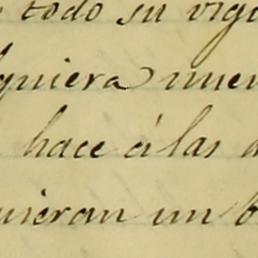 todo su vigo
quiera nue
hace á las
uieran un